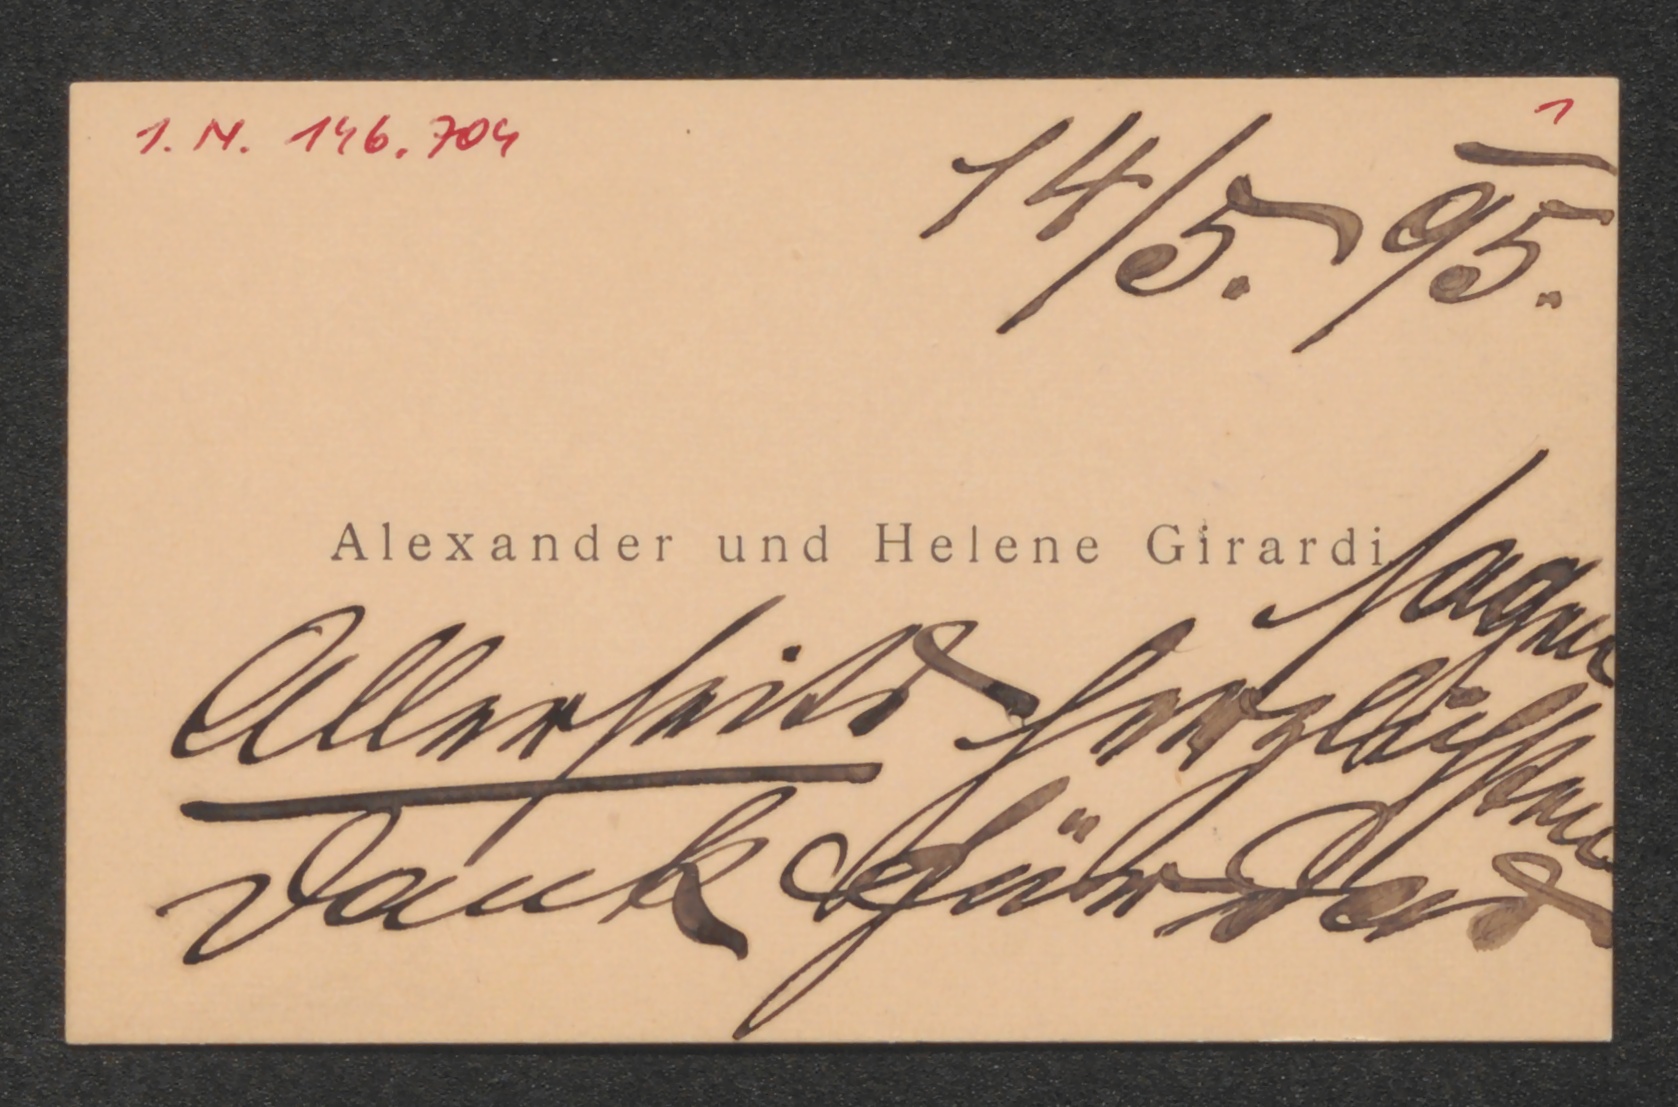 I. N. 146.704
1
14/5. 95.
Alexander und Helene Girardi
sagen
Allerseits herzlichsten
Dank für das